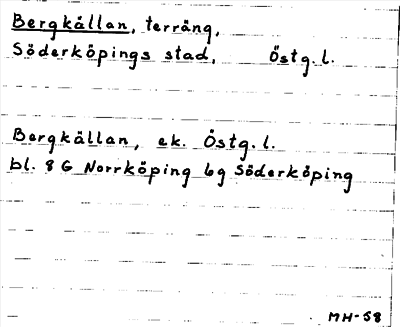 Bergkällan, terräng,
Söderköpings stad, Östg.l.
Bergkällan, ek. Östg.l.
bl. 8 G Norrköping 6g Söderköping
MH-58